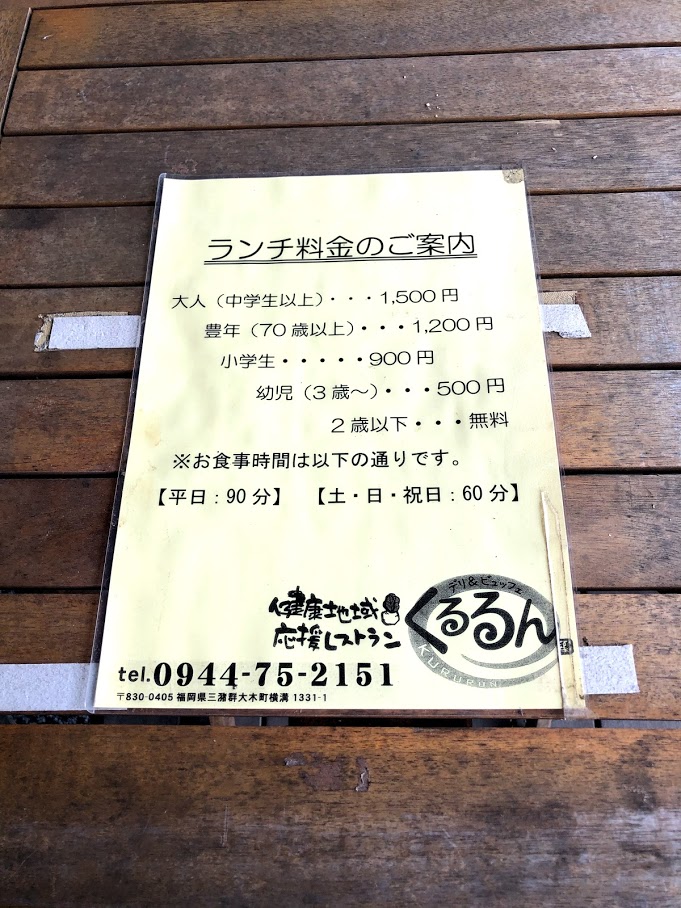 ランチ料金のご案内
大人（中学生以上）・・・1,500円
豊年（70歳以上）・・・1,200円
小学生・・・・・900円
幼児（3歳～）・・・500円
2歳以下・・・無料
※お食事時間は以下の通りです。
【平日：90分】 【土・日・祝日：60分】
健康地域
応援レストラン
デリ&ビュッフェ
くるるん
KURURUN
tel.0944-75-2151
〒830-0405 福岡県三瀦群大木町横溝 1331-1